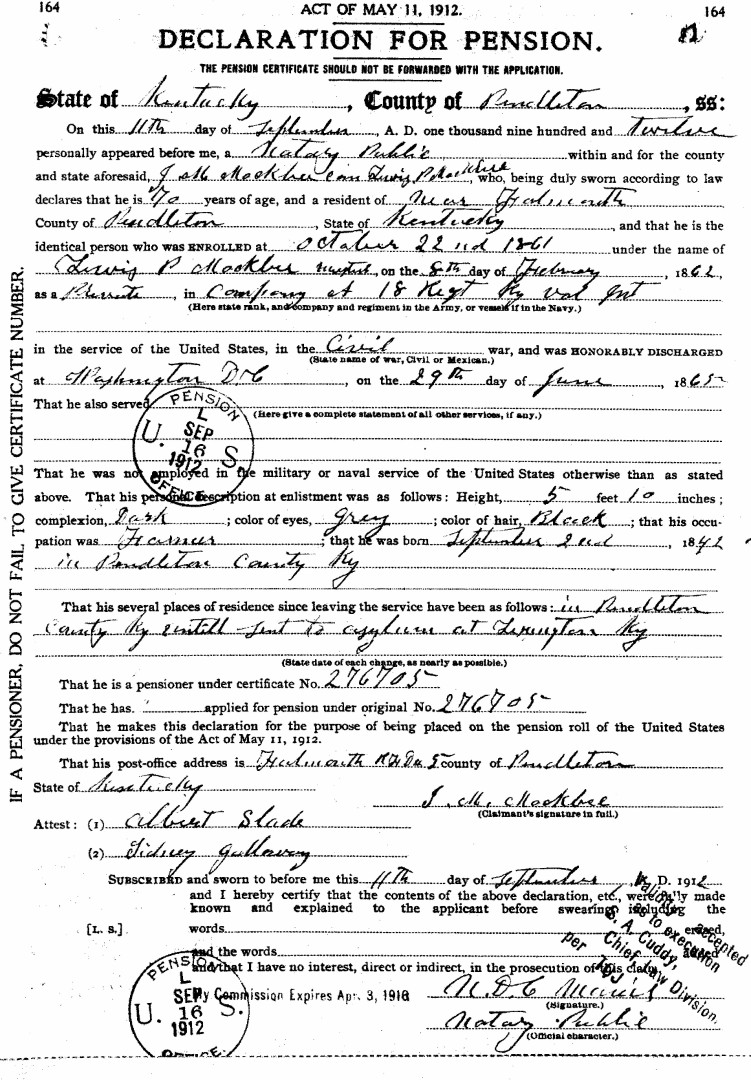 164 ACT OF MAY 11, 1912. 164
DECLARATION FOR PENSION.
THE PENSION CERTIFICATE SHOULD NOT BE FORWARDED WITH THE APPLICATION.
State of Kentucky, County of Pendleton, ss:
On this 11th day of September, A. D. one thousand nine hundred and twelve
personally appeared before me, a Notary Public within and for the county
and state aforesaid, J M Mockbee Com Lewis P Mockbee, who, being duly sworn according to law
declares that he is 70 years of age, and a resident of Near Falmouth
County of Pendleton, State of Kentucky, and that he is the
identical person who was ENROLLED at October 22nd 1861 under the name of
Lewis P Mockbee, on the 8th day of February, 1862,
as a Private, in Company A 18 Regt Ky Vol Inf
(Here state rank, and company and regiment in the Army, or vessels if in the Navy.)
in the service of the United States, in the Civil war, and was HONORABLY DISCHARGED
(State name of war, Civil or Mexican.)
at Washington D C, on the 29th day of June, 1865
That he also served
(Here give a complete statement of all other services, if any.)
That he was not employed in the military or naval service of the United States otherwise than as stated
above. That his personal description at enlistment was as follows: Height, 5 feet 10 inches;
complexion, Dark; color of eyes, Grey; color of hair, Black; that his occu-
pation was Farmer; that he was born September 2nd, 1842
in Pendleton County Ky
That his several places of residence since leaving the service have been as follows: in Pendleton
County Ky untill sent to asylum at Lexington Ky
(State date of each change, as nearly as possible.)
That he is a pensioner under certificate No. 276705
That he has applied for pension under original No. 276705
That he makes this declaration for the purpose of being placed on the pension roll of the United States
under the provisions of the Act of May 11, 1912.
That his post-office address is Falmouth R F D No 5 county of Pendleton
State of Kentucky
J. M. Mockbee
(Claimant's signature in full.)
Attest: (1) Albert Slade
(2) Sidney Galloway
SUBSCRIBED and sworn to before me this 11th day of September, A. D. 1912
and I hereby certify that the contents of the above declaration, etc., were fully made
known and explained to the applicant before swearing, including the
[L. S.] words erased,
and the words added
and that I have no interest, direct or indirect, in the prosecution of this claim.
My Commission Expires Apr. 3, 1916
(Signature.)
Notary Public
(Official character.)
IF A PENSIONER, DO NOT FAIL TO GIVE CERTIFICATE NUMBER.
U. S. PENSION OFFICE
SEP 16 1912
U. S. PENSION OFFICE
SEP 16 1912
Validity accepted
as to execution
Chief, Law Division.
per